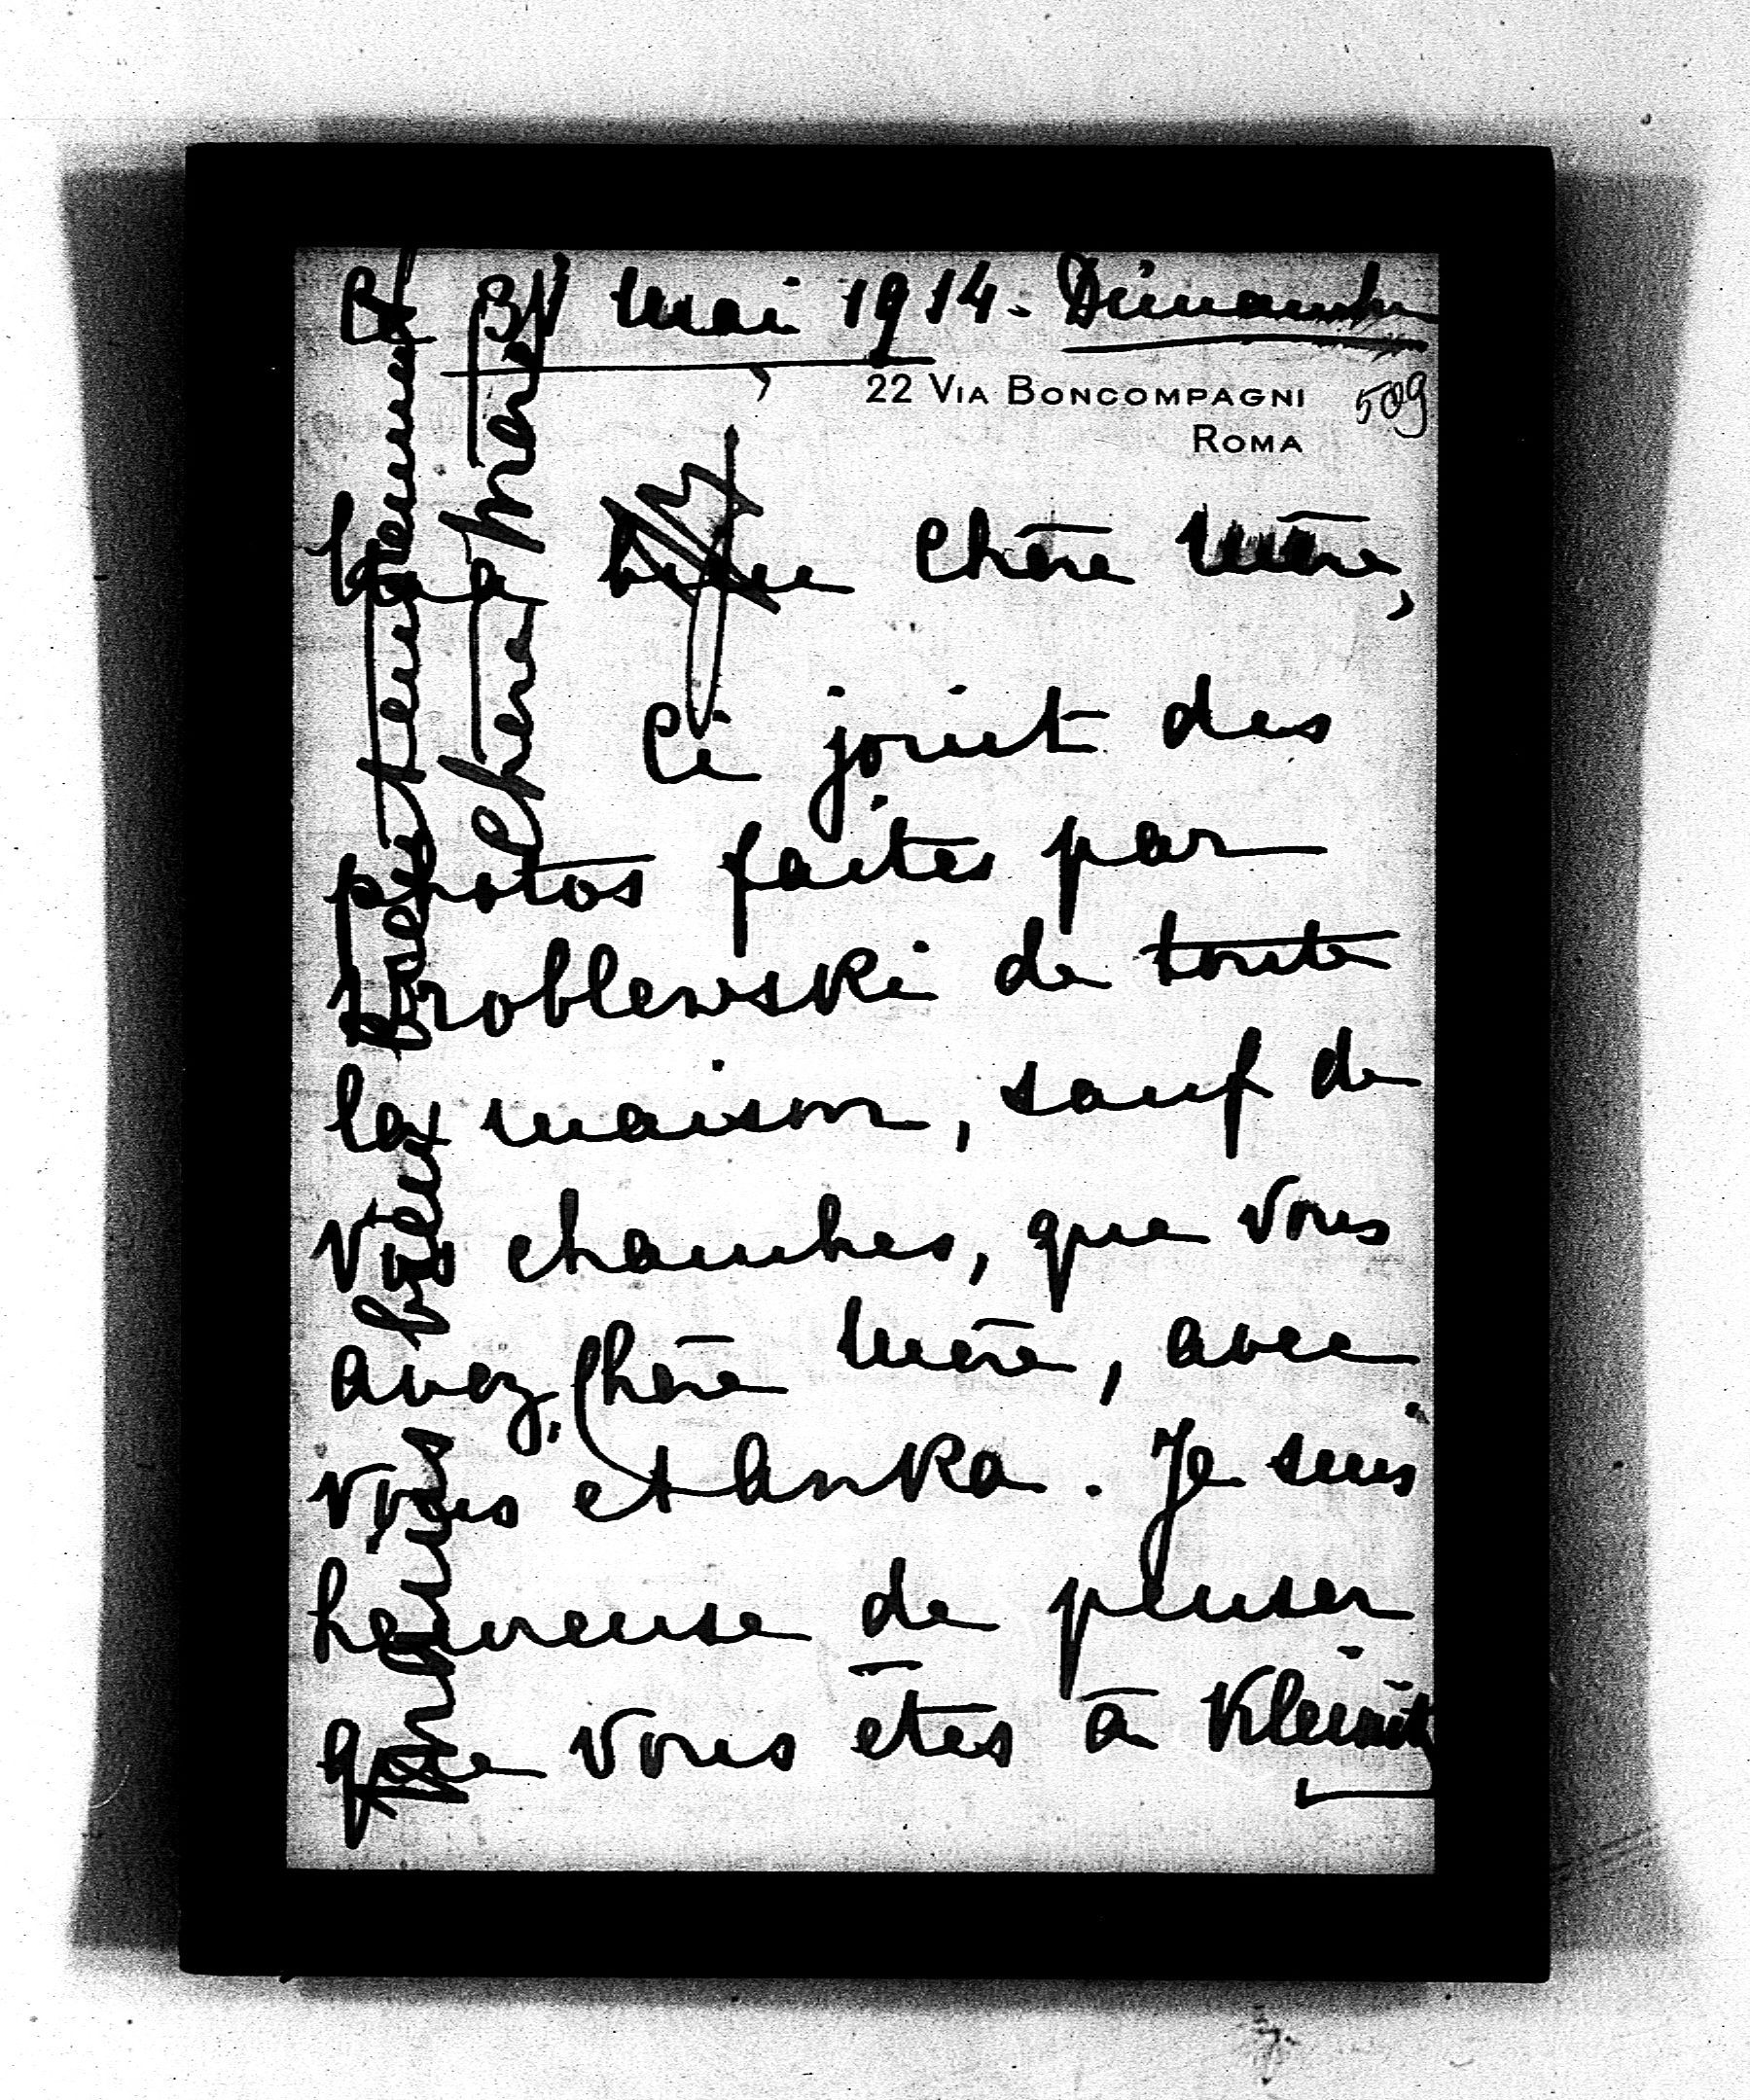 Ce 31 Mai 1914. Dimanche
22 VIA BONCOMPAGNI
ROMA
509
Ma bien Chère Mère,
Ci joint des
photos faites par
Wroblewski de toute
la maison, sauf de
vos chambres, que vous
avez, Chère Mère, avec
vous et Anka. Je suis
heureuse de penser
que vous êtes à Klenitz
vous bien
tendrement
Chère Mère